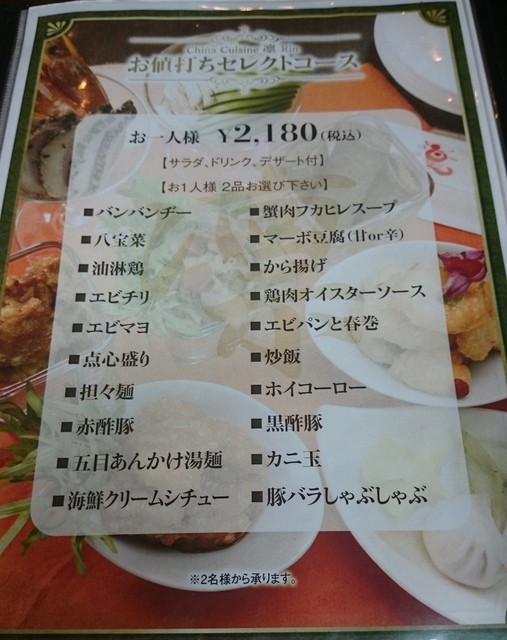 China Cuisine 凛 Rin
お値打ちセレクトコース
お一人様 ¥2,180(税込)
【サラダ、ドリンク、デザート付】
【お1人様 2品お選び下さい】
■バンバンヂー
■八宝菜
■油淋鶏
■エビチリ
■エビマヨ
■点心盛り
■担々麺
■赤酢豚
■五目あんかけ湯麺
■海鮮クリームシチュー
■蟹肉フカヒレスープ
■マーボ豆腐(甘or辛)
■から揚げ
■鶏肉オイスターソース
■エビパンと春巻
■炒飯
■ホイコーロー
■黒酢豚
■カニ玉
■豚バラしゃぶしゃぶ
※2名様から承ります。